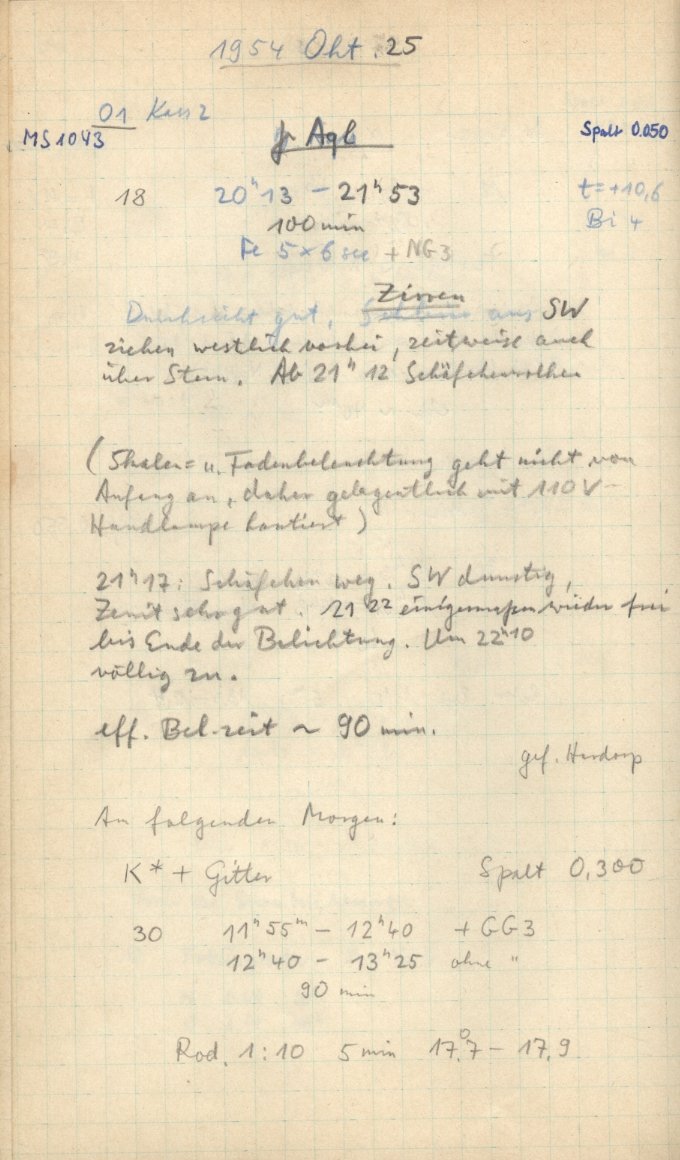 1954 Okt. 25
01 Kass 2
MS 1043
Aql
Spalt 0.050
18 20ʰ13 – 21ʰ53 t = +10,6
100 min Bi 4
Fe 5 × 6 sec + NG3
Zirren
Durchsicht gut, aus SW
ziehen westlich vorbei, zeitweise auch
über Stern. Ab 21ʰ12 Schäfchenwolken
(Skalen= u. Fadenbeleuchtung geht nicht von
Anfang an, daher gelegentlich mit 110V–
Handlampe hantiert)
21ʰ17: Schäfchen weg. SW dunstig,
Zenit sehr gut. 21ʰ22 einigermaßen wieder frei
bis Ende der Belichtung. Um 22ʰ10
völlig zu.
eff. Bel.zeit ~ 90 min.
gef.
Am folgenden Morgen:
K* + Gitter Spalt 0,300
30 11ʰ55ᵐ – 12ʰ40 + GG3
12ʰ40 – 13ʰ25 ohne "
90 min
Rod. 1:10 5 min 17°,7 – 17,9